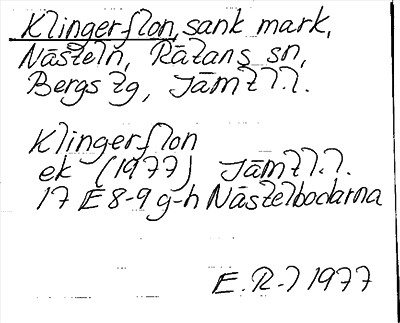 Klingerflon, sank mark,
Nästeln, Rätans sn,
Bergs tg, Jämtl.l.
Klingerflon
ek (1977) Jämtl.l.
17 E 8-9 g-h Nästelbodarna
E. R-l 1977